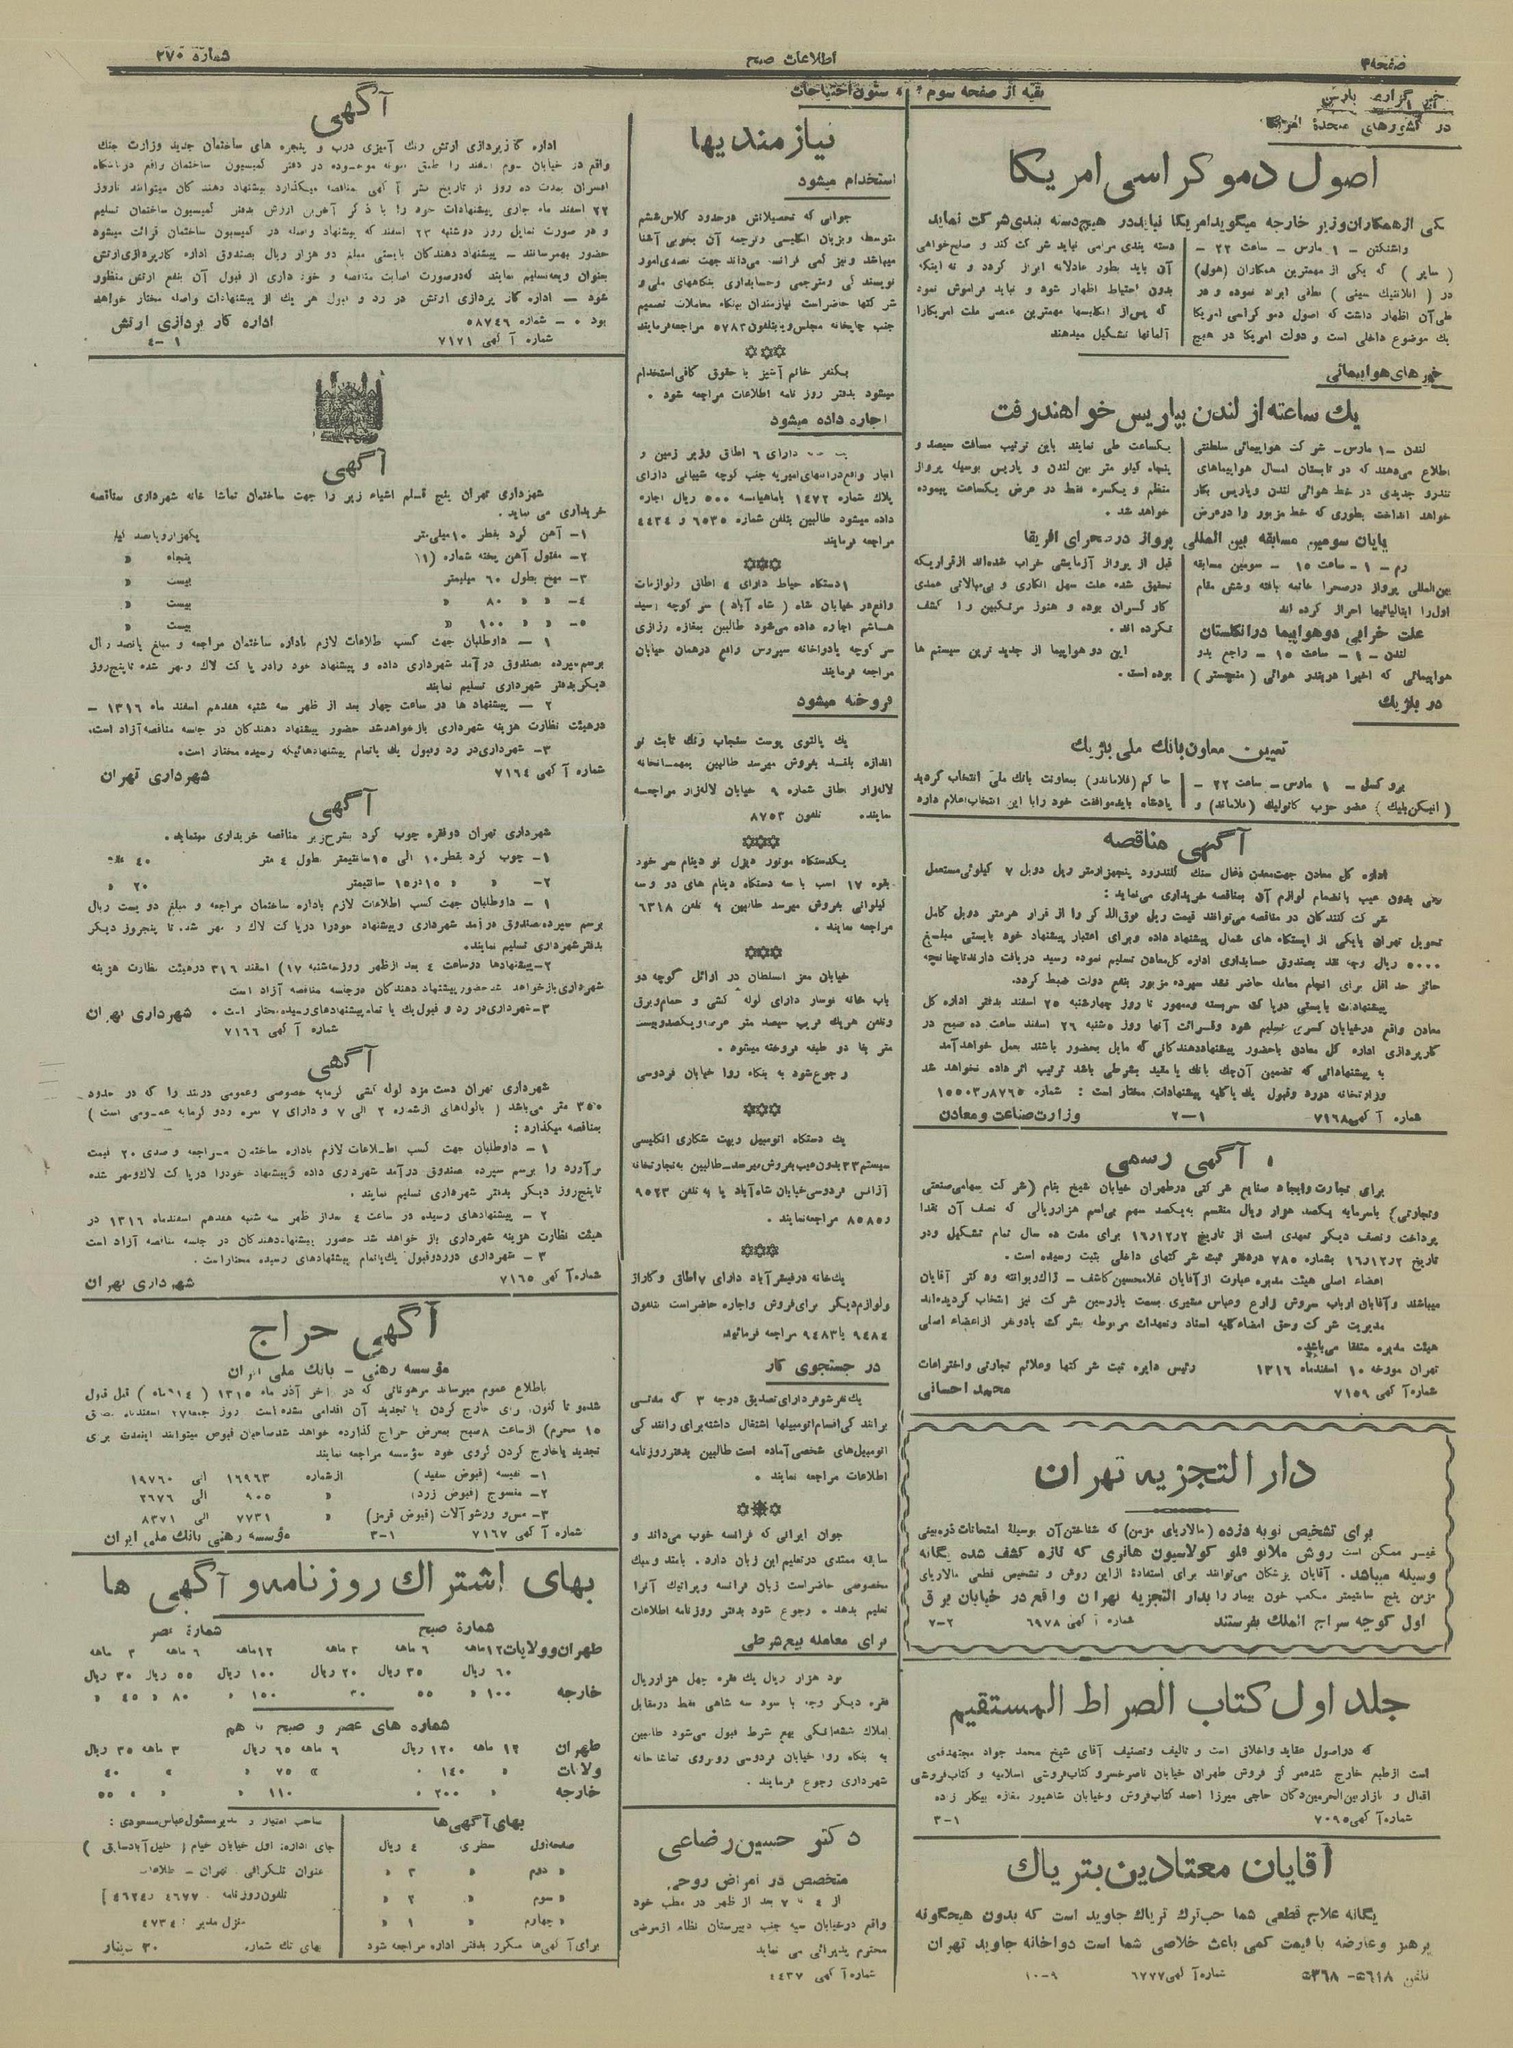 صفحه ۴
اطلاعات صبح
شماره ۲۷۰
خبرگزاری پارس
در کشورهای متحدهٔ امریکا
اصول دموکراسی امریکا
یکی از همکاران وزیر خارجه میگوید امریکا نباید در هیچ دسته بندی شرکت نماید
واشنگتن - ۱ مارس - ساعت ۲۲ -
( سایر ) که یکی از مهمترین همکاران (هول)
در ( اتلانتیک سیتی ) نطقی ایراد نموده و در
طی آن اظهار داشت که اصول دمو کراسی امریکا
یک موضوع داخلی است و دولت امریکا در هیچ
دسته بندی مرامی نباید شرکت کند و صلح خواهی
آن باید بطور عادلانه ابراز گردد و نه اینکه
بدون احتیاط اظهار شود و نباید فراموش نمود
که پس از انگلیسها مهمترین عنصر ملت امریکا را
آلمانها تشکیل میدهند
خبرهای هواپیمائی
یک ساعته از لندن بپاریس خواهند رفت
لندن - ۱ مارس - شرکت هواپیمائی سلطنتی
اطلاع می‌دهند که در تابستان امسال هواپیماهای
تندرو جدیدی در خط هوائی لندن و پاریس بکار
خواهد انداخت بطوری که خط مزبور را در عرض
یکساعت طی نمایند باین ترتیب مسافت سیصد و
پنجاه کیلو متر بین لندن و پاریس بوسیله پرواز
منظم و یکسره فقط در عرض یکساعت پیموده
خواهد شد .
پایان سومین مسابقه بین المللی پرواز در صحرای افریقا
رم - ۱ - ساعت ۱۵ - سومین مسابقه
بین‌المللی پرواز در صحرا خاتمه یافته و شش مقام
اول را ایتالیائیها احراز کرده اند
علت خرابی دو هواپیما در انگلستان
لندن - ۱ - ساعت ۱۵ - راجع بدو
هواپیمائی که اخیرا در بندر هوائی ( منچستر )
قبل از پرواز آزمایشی خراب شده‌اند از قراریکه
تحقیق شده علت سهل انگاری و بی‌مبالاتی عمدی
کارگران بوده و هنوز مرتکبین را کشف
نکرده اند .
این دو هواپیما از جدید ترین سیستم ها
بوده است .
در بلژیک
تعیین معاون بانک ملی بلژیک
بروکسل - ۱ مارس - ساعت ۲۲ -
عضو حزب کاتولیک (فلاماند) و
حاکم (فلاماندر) بمعاونت بانک ملی انتخاب گردید
پادشاه باید موافقت خود را با این انتخاب اعلام دارد
آگهی مناقصه
اداره کل معادن جهت معدن ذغال سنگ گلندرود پنجهزار متر ریل دوبل ۷ کیلوئی مستعمل
ولی بدون عیب بانضمام لوازم آن بمناقصه خریداری می‌نماید :
شرکت کنندگان در مناقصه می‌توانند قیمت ریل فوق‌الذکر را از قرار هر متر دوبل کامل
تحویل تهران یا یکی از ایستگاه های شمال پیشنهاد داده و برای اعتبار پیشنهاد خود بایستی مبلغ
۵۰۰۰ ریال وجه نقد بصندوق حسابداری اداره کل معادن تسلیم نموده رسید دریافت دارند تا چنانچه
حائز حد اقل برای انجام معامله حاضر نشد سپرده مزبور بنفع دولت ضبط گردد.
پیشنهادات بایستی در پاکت سربسته وممهور تا روز چهارشنبه ۲۵ اسفند بدفتر اداره کل
معادن واقع در خیابان کسری تسلیم شود وقرائت آنها روز ۵شنبه ۲۶ اسفند ساعت ده صبح در
کارپردازی اداره کل معادن باحضور پیشنهاددهندگانی که مایل بحضور باشند بعمل خواهد آمد
به پیشنهاداتی که تضمین آن چک بانک یا مقید بشرطی باشد ترتیب اثر داده نخواهد شد
وزارتخانه در رد وقبول یک یا کلیه پیشنهادات مختار است : شماره ۱۵۵۰۳ر۸۷۶۵
شماره آگهی ۷۱۶۸
۲-۱
وزارت صناعت و معادن
آگهی رسمی
برای تجارت وایجاد صنایع شرکتی در طهران خیابان شیخ بنام (شرکت سهامی صنعتی
وتجارتی) باسرمایه یکصد هزار ریال منقسم به یکصد سهم یک هزار ریالی که نصف آن نقدا
پرداخت ونصف دیگر تعهدی است از تاریخ ۱۶٫۱۲٫۲ برای مدت ده سال تمام تشکیل ودر
تاریخ ۱۶٫۱۲٫۲ بشماره ۷۸۵ در دفتر ثبت شرکتهای داخلی بثبت رسیده است .
اعضاء اصلی هیئت مدیره عبارت از آقایان غلامحسین کاشف -
میباشند وآقایان ارباب سروش زارع وعباس مشیری بسمت بازرسین شرکت نیز انتخاب گردیده‌اند
مدیریت شرکت وحق امضاء کلیه اسناد وتعهدات مربوطه بشرکت بادو نفر از اعضاء اصلی
هیئت مدیره متفقا می‌باشد.
تهران مورخه ۱۰ اسفندماه ۱۳۱۶
رئیس دایره ثبت شرکتها وعلائم تجارتی واختراعات
شماره آگهی ۷۱۵۹
محمد احسانی
دار التجزیه تهران
برای تشخیص نوبه دزده (مالاریای مزمن) که شناختن آن بوسیلهٔ امتحانات ذره‌بینی
غیر ممکن است روش ملانو فلو کولاسیون هانری که تازه کشف شده یگانه
وسیله میباشد . آقایان پزشکان می‌توانند برای استفادهٔ از این روش و تشخیص قطعی مالاریای
مزمن پنج سانتیمتر مکعب خون بیمار را بدار التجزیه تهران واقع در خیابان برق
اول کوچه سراج الملک بفرستند
شماره آگهی ۶۹۷۸
۷-۲
جلد اول کتاب الصراط المستقیم
که در اصول عقاید واخلاق است و تالیف وتصنیف آقای شیخ محمد جواد مجتهد قمی
است از طبع خارج شده مرکز فروش طهران خیابان ناصرخسرو کتاب‌فروشی اسلامیه و کتاب‌فروشی
اقبال و بازار بین‌الحرمین دکان حاجی میرزا احمد کتاب‌فروش وخیابان شاهپور مغازه بیکار زاده
شماره آگهی ۷۰۹۵
۳-۱
آقایان معتادین بتریاک
یگانه علاج قطعی شما حب ترک تریاک جاوید است که بدون هیچگونه
پرهیز وعارضه با قیمت کمی باعث خلاصی شما است دواخانه جاوید تهران
تلفن ۵۶۱۸-۵۳۶۸
شماره آگهی ۶۷۷۷
۱۰-۹
بقیه از صفحه سوم
ستون احتیاجات
نیازمندیها
استخدام میشود
جوانی که تحصیلاتش در حدود کلاس ششم
متوسطه وبزبان انگلیسی وترجمه آن بخوبی آشنا
میباشد ونیز کمی فرانسه می‌داند جهت تصدی امور
نویسندگی ومترجمی وحسابداری بنگاههای ملی و
شرکتها حاضر است نیازمندان ببنگاه معاملات تصمیم
جنب چاپخانه مجلس ویا بتلفون ۵۷۸۳ مراجعه فرمایند
یکنفر خانم آشپز با حقوق کافی استخدام
میشود بدفتر روز نامه اطلاعات مراجعه شود .
اجاره داده میشود
دارای ۶ اطاق وزیر زمین و
انبار واقع در انتهای امیریه جنب کوچه شیبانی دارای
پلاک شماره ۱۴۷۲ با ماهیانه ۵۰۰ ریال اجاره
داده میشود طالبین بتلفن شماره ۶۵۳۵ و ۴۴۳۴
مراجعه فرمایند
۱ دستگاه حیاط دارای ۴ اطاق ولوازمات
واقع در خیابان شاه ( شاه آباد ) سر کوچه سید
هاشم اجاره داده می‌شود طالبین بمغازه رزازی
سر کوچه یا دواخانه سیروس واقع در همان خیابان
مراجعه فرمایند
فروخته میشود
یک پالتوی پوست سنجاب رنگ ثابت نو
اندازه بلند بفروش میرسد طالبین بمهمانخانه
لاله‌زار اطاق شماره ۹ خیابان لاله‌زار مراجعه
نمایند. تلفون ۸۷۵۳
یکدستگاه موتور دیزل نو دینام سر خود
بقوه ۱۷ اسب با سه دستگاه دینام های دو و سه
کیلواتی بفروش میرسد طالبین به تلفن ۶۳۱۸
مراجعه نمایند .
خیابان معز السلطان در اوائل کوچه دو
باب خانه نوساز دارای لوله کشی و حمام وبرق
وتلفن هریک قریب سیصد متر عرصه ویکصد وبیست
متر بنا دو طبقه فروخته میشود .
رجوع شود به بنگاه روا خیابان فردوسی
یک دستگاه اتومبیل ویپت شکاری انگلیسی
سیستم ۳۳ بدون عیب بفروش میرسد - طالبین به تجارتخانه
آژانس فردوسی خیابان شاه‌آباد یا به تلفن ۹۵۲۳
و ۸۵۸۵ مراجعه نمایند .
یک خانه در قیشرآباد دارای ۷ اطاق وگاراژ
ولوازم دیگر برای فروش واجاره حاضر است بتلفون
۹۴۸۴ یا ۹۴۸۳ مراجعه فرمائید
در جستجوی کار
یک نفر شوفر دارای تصدیق درجه ۳ که مدتی
برانندگی اقسام اتومبیلها اشتغال داشته برای رانندگی
اتومبیل‌های شخصی آماده است طالبین بدفتر روزنامه
اطلاعات مراجعه نمایند .
جوان ایرانی که فرانسه خوب می‌داند و
سابقه ممتدی در تعلیم این زبان دارد . بامتد ومیک
مخصوصی حاضر است زبان فرانسه وپراتیک آنرا
تعلیم بدهد . رجوع شود بدفتر روزنامه اطلاعات
برای معامله بیع شرطی
نود هزار ریال یک فقره چهل هزار ریال
فقره دیگر وجه با سود سه شاهی فقط در مقابل
املاک ششدانگی بیع شرط قبول می‌شود طالبین
به بنگاه روا خیابان فردوسی روبروی تماشاخانه
شهرداری رجوع فرمایند .
دکتر حسین رضاعی
متخصص در امراض روحی
از ۴ تا ۷ بعد از ظهر در مطب خود
واقع در خیابان سپه جنب دبیرستان نظام از مرضی
محترم پذیرائی می نماید
شماره آگهی ۴۴۳۷
آگهی
اداره کارپردازی ارتش رنگ آمیزی درب و پنجره های ساختمان جدید وزارت جنگ
واقع در خیابان سوم اسفند را طبق نمونه موجوده در دفتر کمیسیون ساختمان واقع در باشگاه
افسران بمدت ده روز از تاریخ نشر آگهی بمناقصه میگذارد پیشنهاد دهندگان میتوانند تاروز
۲۲ اسفند ماه جاری پیشنهادات خود را با ذکر آخرین ارزش بدفتر کمیسیون ساختمان تسلیم
و در صورت تمایل روز دوشنبه ۲۳ اسفند که پیشنهاد واصله در کمیسیون ساختمان قرائت میشود
حضور بهمرسانند - پیشنهاد دهندگان بایستی مبلغ دو هزار ریال بصندوق اداره کارپردازی ارتش
بعنوان ودیعه تسلیم نمایند که در صورت اصابت مناقصه و خودداری از قبول آن بنفع ارتش منظور
شود - اداره کارپردازی ارتش در رد و قبول هر یک از پیشنهادات واصله مختار خواهد
بود . شماره ۵۸۷۴۶
اداره کار پردازی ارتش
شماره آگهی ۷۱۷۱
۴-۱
آگهی
شهرداری تهران پنج قلم اشیاء زیر را جهت ساختمان تماشا خانه شهرداری بمناقصه
خریداری می نماید .
۱- آهن گرد بقطر ۱۰ میلی‌متر یکهزار و پانصد کیلو
۲- مفتول آهن پخته شماره (۱۱) پنجاه «
۳- میخ بطول ۶۰ میلیمتر بیست «
۴- « « ۸۰ « بیست «
۵- « « ۱۰۰ « بیست «
۱ - داوطلبان جهت کسب اطلاعات لازم باداره ساختمان مراجعه و مبلغ پانصد ریال
برسم سپرده بصندوق درآمد شهرداری داده و پیشنهاد خود را در پاکت لاک ومهر شده تا پنج روز
دیگر بدفتر شهرداری تسلیم نمایند
۲ - پیشنهاد ها در ساعت چهار بعد از ظهر سه شنبه هفدهم اسفند ماه ۱۳۱۶ -
در هیئت نظارت هزینه شهرداری باز خواهد شد حضور پیشنهاد دهندگان در جلسه مناقصه آزاد است.
۳- شهرداری در رد وقبول یک یا تمام پیشنهادهائیکه رسیده مختار است.
شماره آگهی ۷۱۶۴
شهرداری تهران
آگهی
شهرداری تهران دو فقره چوب گرد بشرح زیر بمناقصه خریداری مینماید.
۱- چوب گرد بقطر ۱۰ الی ۱۵ سانتیمتر بطول ۴ متر ۴۰
۲- « « ۱۵ در ۱۵ سانتیمتر ۲۰ «
۱ - داوطلبان جهت کسب اطلاعات لازم باداره ساختمان مراجعه و مبلغ دویست ریال
برسم سپرده بصندوق درآمد شهرداری و پیشنهاد خود را در پاکت لاک و مهر شده تا پنجروز دیگر
بدفتر شهرداری تسلیم نمایند.
۲- پیشنهادها در ساعت ۴ بعد از ظهر روز سه‌شنبه ۱۷ اسفند ۳۱۶ در هیئت نظارت هزینه
شهرداری باز خواهد شد حضور پیشنهاد دهندگان در جلسه مناقصه آزاد است
۳- شهرداری در رد و قبول یک یا تمام پیشنهادهای رسیده مختار است .
شهرداری تهران
شماره آگهی ۷۱۶۶
آگهی
شهرداری تهران دست مزد لوله کشی گرمابه خصوصی وعمومی دربند را که در حدود
۳۵۰ متر می‌باشد ( بالوله‌های از شماره ۲ الی ۷ و دارای ۷ نمره ودو گرمابه عمومی است )
بمناقصه میگذارد :
۱ - داوطلبان جهت کسب اطلاعات لازم باداره ساختمان مراجعه و صدی ۲۰ قیمت
برآورد را برسم سپرده بصندوق درآمد شهرداری داده وپیشنهاد خود را در پاکت لاک ومهر شده
تا پنج روز دیگر بدفتر شهرداری تسلیم نمایند .
۲ - پیشنهادهای رسیده در ساعت ۴ بعد از ظهر سه شنبه هفدهم اسفندماه ۱۳۱۶ در
هیئت نظارت هزینه شهرداری باز خواهد شد حضور پیشنهاد دهندگان در جلسه مناقصه آزاد است
۳ - شهرداری در رد وقبول یک یا تمام پیشنهادهای رسیده مختار است .
شماره آگهی ۷۱۶۵
شهرداری تهران
آگهی حراج
مؤسسه رهنی - بانک ملی ایران
باطلاع عموم میرساند مرهوناتی که در آخر آذر ماه ۱۳۱۵ قبل قبول
شده و تا کنون برای خارج کردن یا تجدید آن اقدامی نشده است روز جمعه ۲۷ اسفندماه
۱۵ محرم) از ساعت ۸ صبح بمعرض حراج گذارده خواهد شد صاحبان قبوض میتوانند برای
تجدید یا خارج کردن گروی خود بمؤسسه مراجعه نمایند
۱- نفیسه (قبوض سفید) از شماره ۱۶۹۶۳ الی ۱۹۷۶۰
۲- منسوج (قبوض زرد) « ۹۰۵ الی ۲۶۷۶
۳- مس و ورشو آلات (قبوض قرمز) « ۷۷۳۱ الی ۸۳۷۱
شماره آگهی ۷۱۶۷
۳-۱
مؤسسه رهنی بانک ملی ایران
بهای اشتراک روزنامه و آگهی ها
شمارهٔ صبح
شمارهٔ عصر
طهران وولایات ۱۲ ماهه ۶ ماهه ۳ ماهه ۱۲ ماهه ۶ ماهه ۳ ماهه
۶۰ ریال ۳۵ ریال ۲۰ ریال ۱۰۰ ریال ۵۵ ریال ۳۰ ریال
خارجه ۱۰۰ « ۵۵ ۳۰ ۱۵۰ « ۸۰ « ۴۵ «
شماره های عصر و صبح با هم
طهران ۱۲ ماهه ۱۲۰ ریال ۶ ماهه ۶۵ ریال ۳ ماهه ۳۵ ریال
ولایات « ۱۴۰ « « ۷۵ « « ۴۰
خارجه « ۲۰۰ « ۱۱۰ « « ۵۵
بهای آگهی‌ها
صفحه اول سطری ۴ ریال
« دوم « ۳ «
« سوم « ۲ «
« چهارم « ۱ «
برای آگهی‌ها مکرر بدفتر اداره مراجعه شود
صاحب امتیاز و مدیر مسئول عباس مسعودی :
جای اداره: اول خیابان خیام ( جلیل آباد سابق )
عنوان تلگرافی تهران - اطلاعات
تلفون روزنامه ۴۶۷۷ و ۴۶۲۴
منزل مدیر : ۴۷۳۴
بهای تک شماره ۳۰ دینار